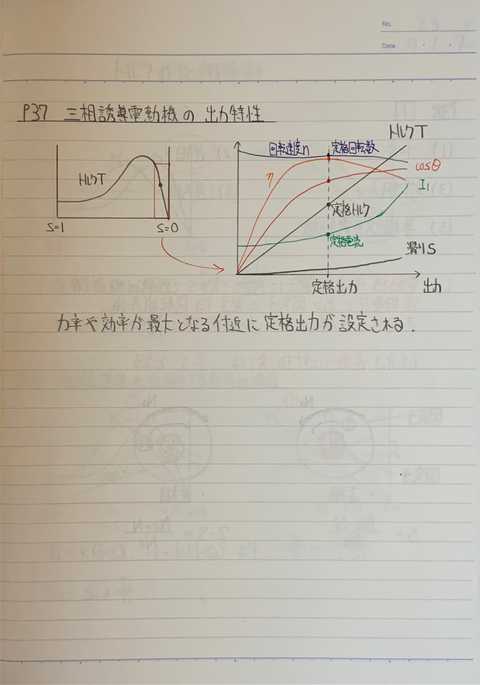 No.
Date
P37 三相誘導電動機の出力特性
トルクT
S=1
S=0
トルクT
回転速度n
定格回転数
η
cosθ
I₁
定格トルク
定格電流
滑りS
定格出力
出力
力率や効率が最大となる付近に定格出力が設定される.